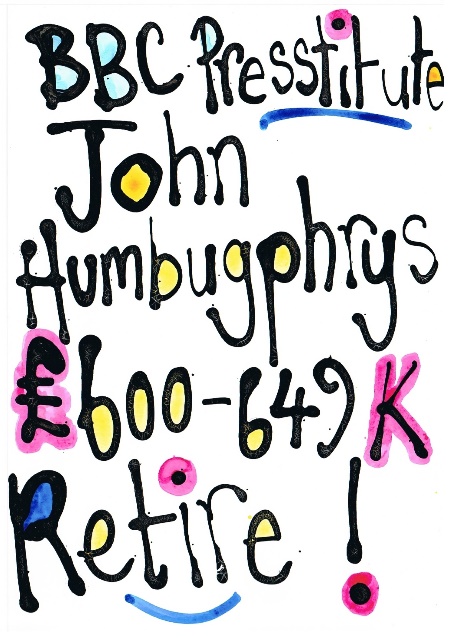 BBC Presstitute
John
Humbugphrys
£600-649K
Retire!